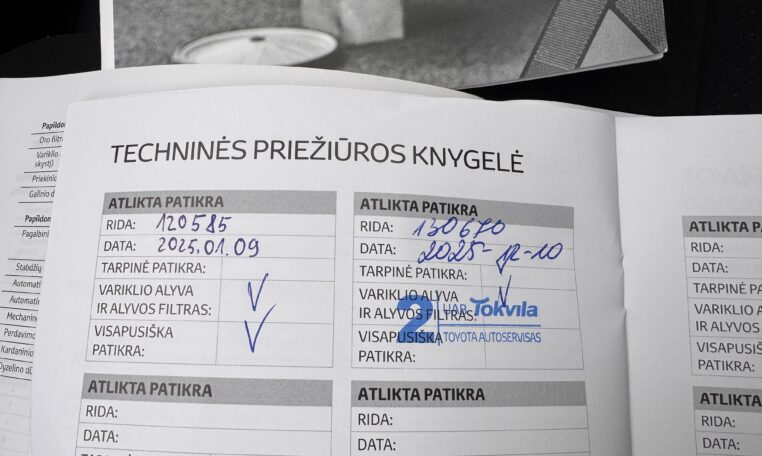 TECHNINĖS PRIEŽIŪROS KNYGELĖ
Papildom
Oro filtr
Variklio
skystį)
Priekinio
Galinio d
Papildom
Pagalbini
Stabdžių
Automati
Automatin
Mechanin
Perdavimo
Kardaninio
Dyzelino dū
ATLIKTA PATIKRA
RIDA: 120585
DATA: 2025.01.09
TARPINĖ PATIKRA:
VARIKLIO ALYVA
IR ALYVOS FILTRAS: V
VISAPUSIŠKA
PATIKRA: V
ATLIKTA PATIKRA
RIDA: 130670
DATA: 2025-12-10
TARPINĖ PATIKRA:
VARIKLIO ALYVA
IR ALYVOS FILTRAS: V
VISAPUSIŠKA
PATIKRA:
2 UAB Tokvila
TOYOTA AUTOSERVISAS
ATLIKTA PA
RIDA:
DATA:
TARPINĖ PA
VARIKLIO A
IR ALYVOS
VISAPUSIŠ
PATIKRA:
ATLIKTA PATIKRA
RIDA:
DATA:
ATLIKTA PATIKRA
RIDA:
DATA:
ATLIKTA PA
RIDA:
DATA: